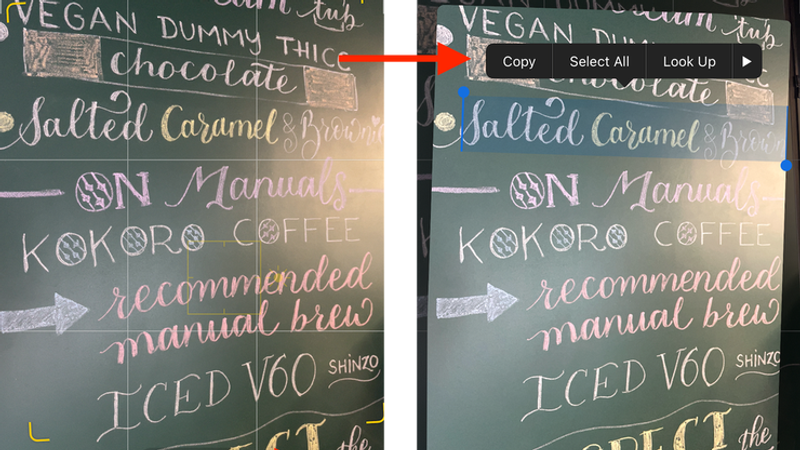 VEGAN DUMMY THICC
chocolate
Salted Caramel & Brownie
ON Manuals
KOKORO COFFEE
recommended
manual brew
ICED V60 SHINZO
the
cream tub
Copy Select All Look Up
chocolate
Salted Caramel & Brown
ON Manuals
KOKORO COFFEE
recommended
manual brew
ICED V60 SHINZO
the